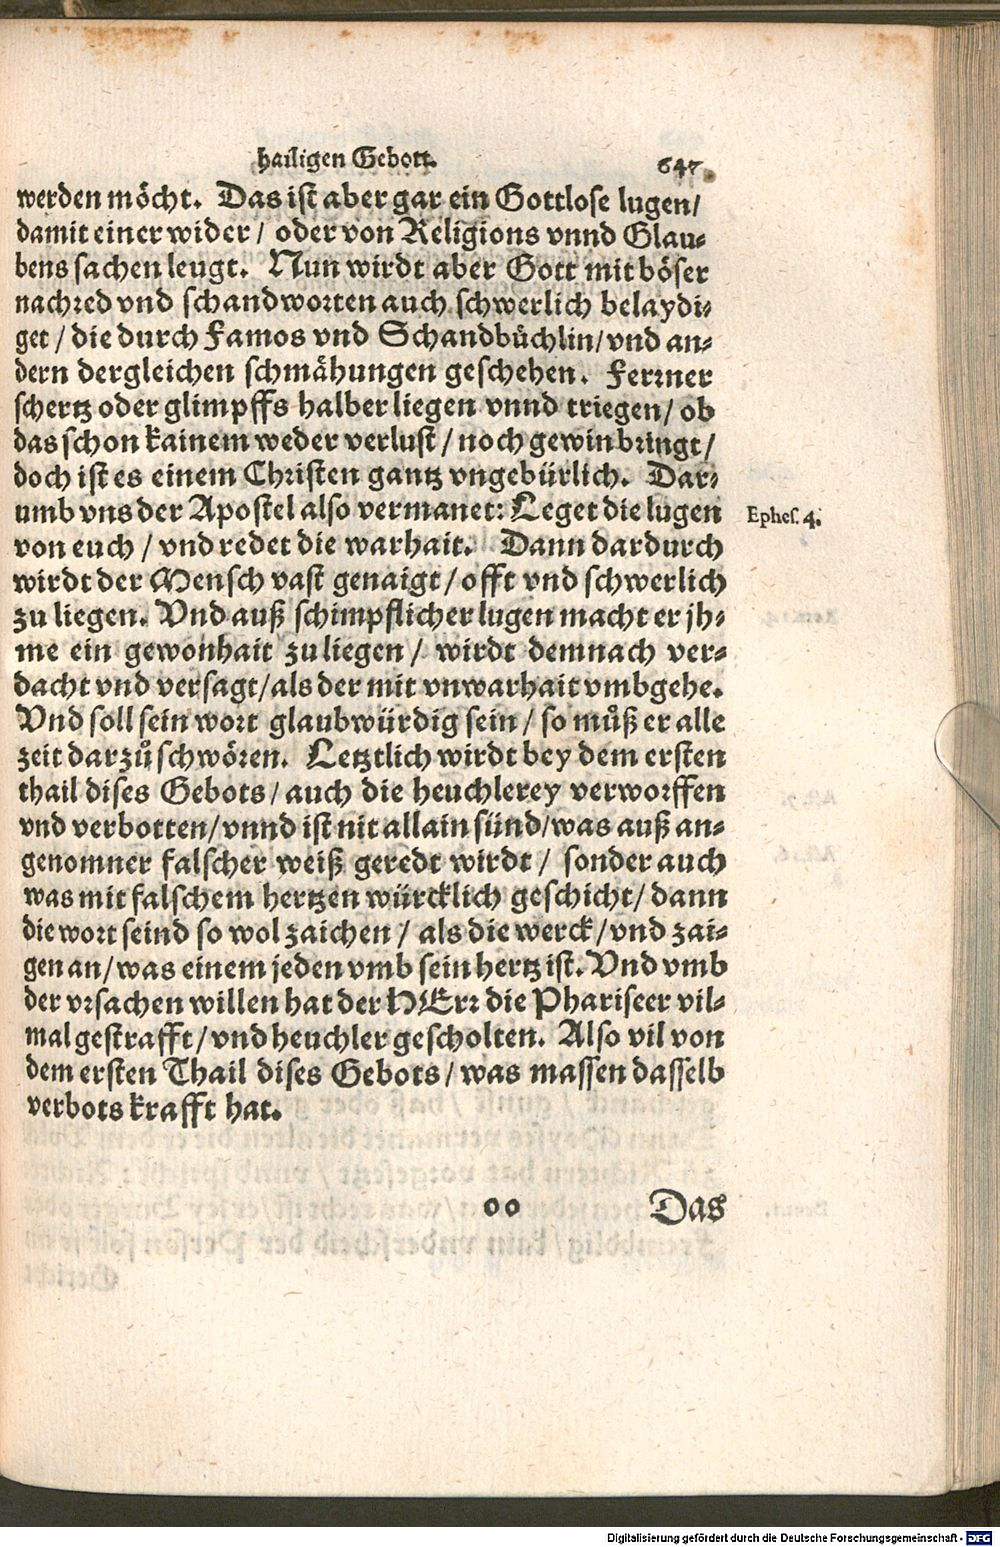 hailigen Gebott. 647
werden möcht. Das ist aber gar ein Gottlose lugen/
damit einer wider / oder von Religions vnnd Glau⸗
bens sachen leugt. Nun wirdt aber Gott mit böser
nachred vnd schandworten auch schwerlich belaydi⸗
get / die durch Famos vnd Schandbüchlin/ vnd an⸗
dern dergleichen schmähungen geschehen. Ferrner
schertz oder glimpffs halber liegen vnnd triegen/ ob
das schon kainem weder verlust / noch gewin bringt/
doch ist es einem Christen gantz vngebürlich. Dar⸗
umb vns der Apostel also vermanet: Leget die lugen
Ephes. 4.
von euch / vnd redet die warhait. Dann dardurch
wirdt der Mensch vast genaigt / offt vnd schwerlich
zu liegen. Vnd auß schimpflicher lugen macht er jh⸗
me ein gewonhait zu liegen / wirdt demnach ver⸗
dacht vnd versagt/als der mit vnwarhait vmbgehe.
Vnd soll sein wort glaubwürdig sein / so můß er alle
zeit darzů schwören. Letztlich wirdt bey dem ersten
thail dises Gebots / auch die heuchlerey verworffen
vnd verbotten/ vnnd ist nit allain sünd/was auß an⸗
genomner falscher weiß geredt wirdt / sonder auch
was mit falschem hertzen würcklich geschicht/ dann
die wort seind so wol zaichen / als die werck/ vnd zai⸗
gen an/ was einem jeden vmb sein hertz ist. Vnd vmb
der vrsachen willen hat der HErr die Phariseer vil⸗
mal gestrafft/ vnd heuchler gescholten. Also vil von
dem ersten Thail dises Gebots / was massen dasselb
verbots krafft hat.
oo Das
Digitalisierung gefördert durch die Deutsche Forschungsgemeinschaft - DFG